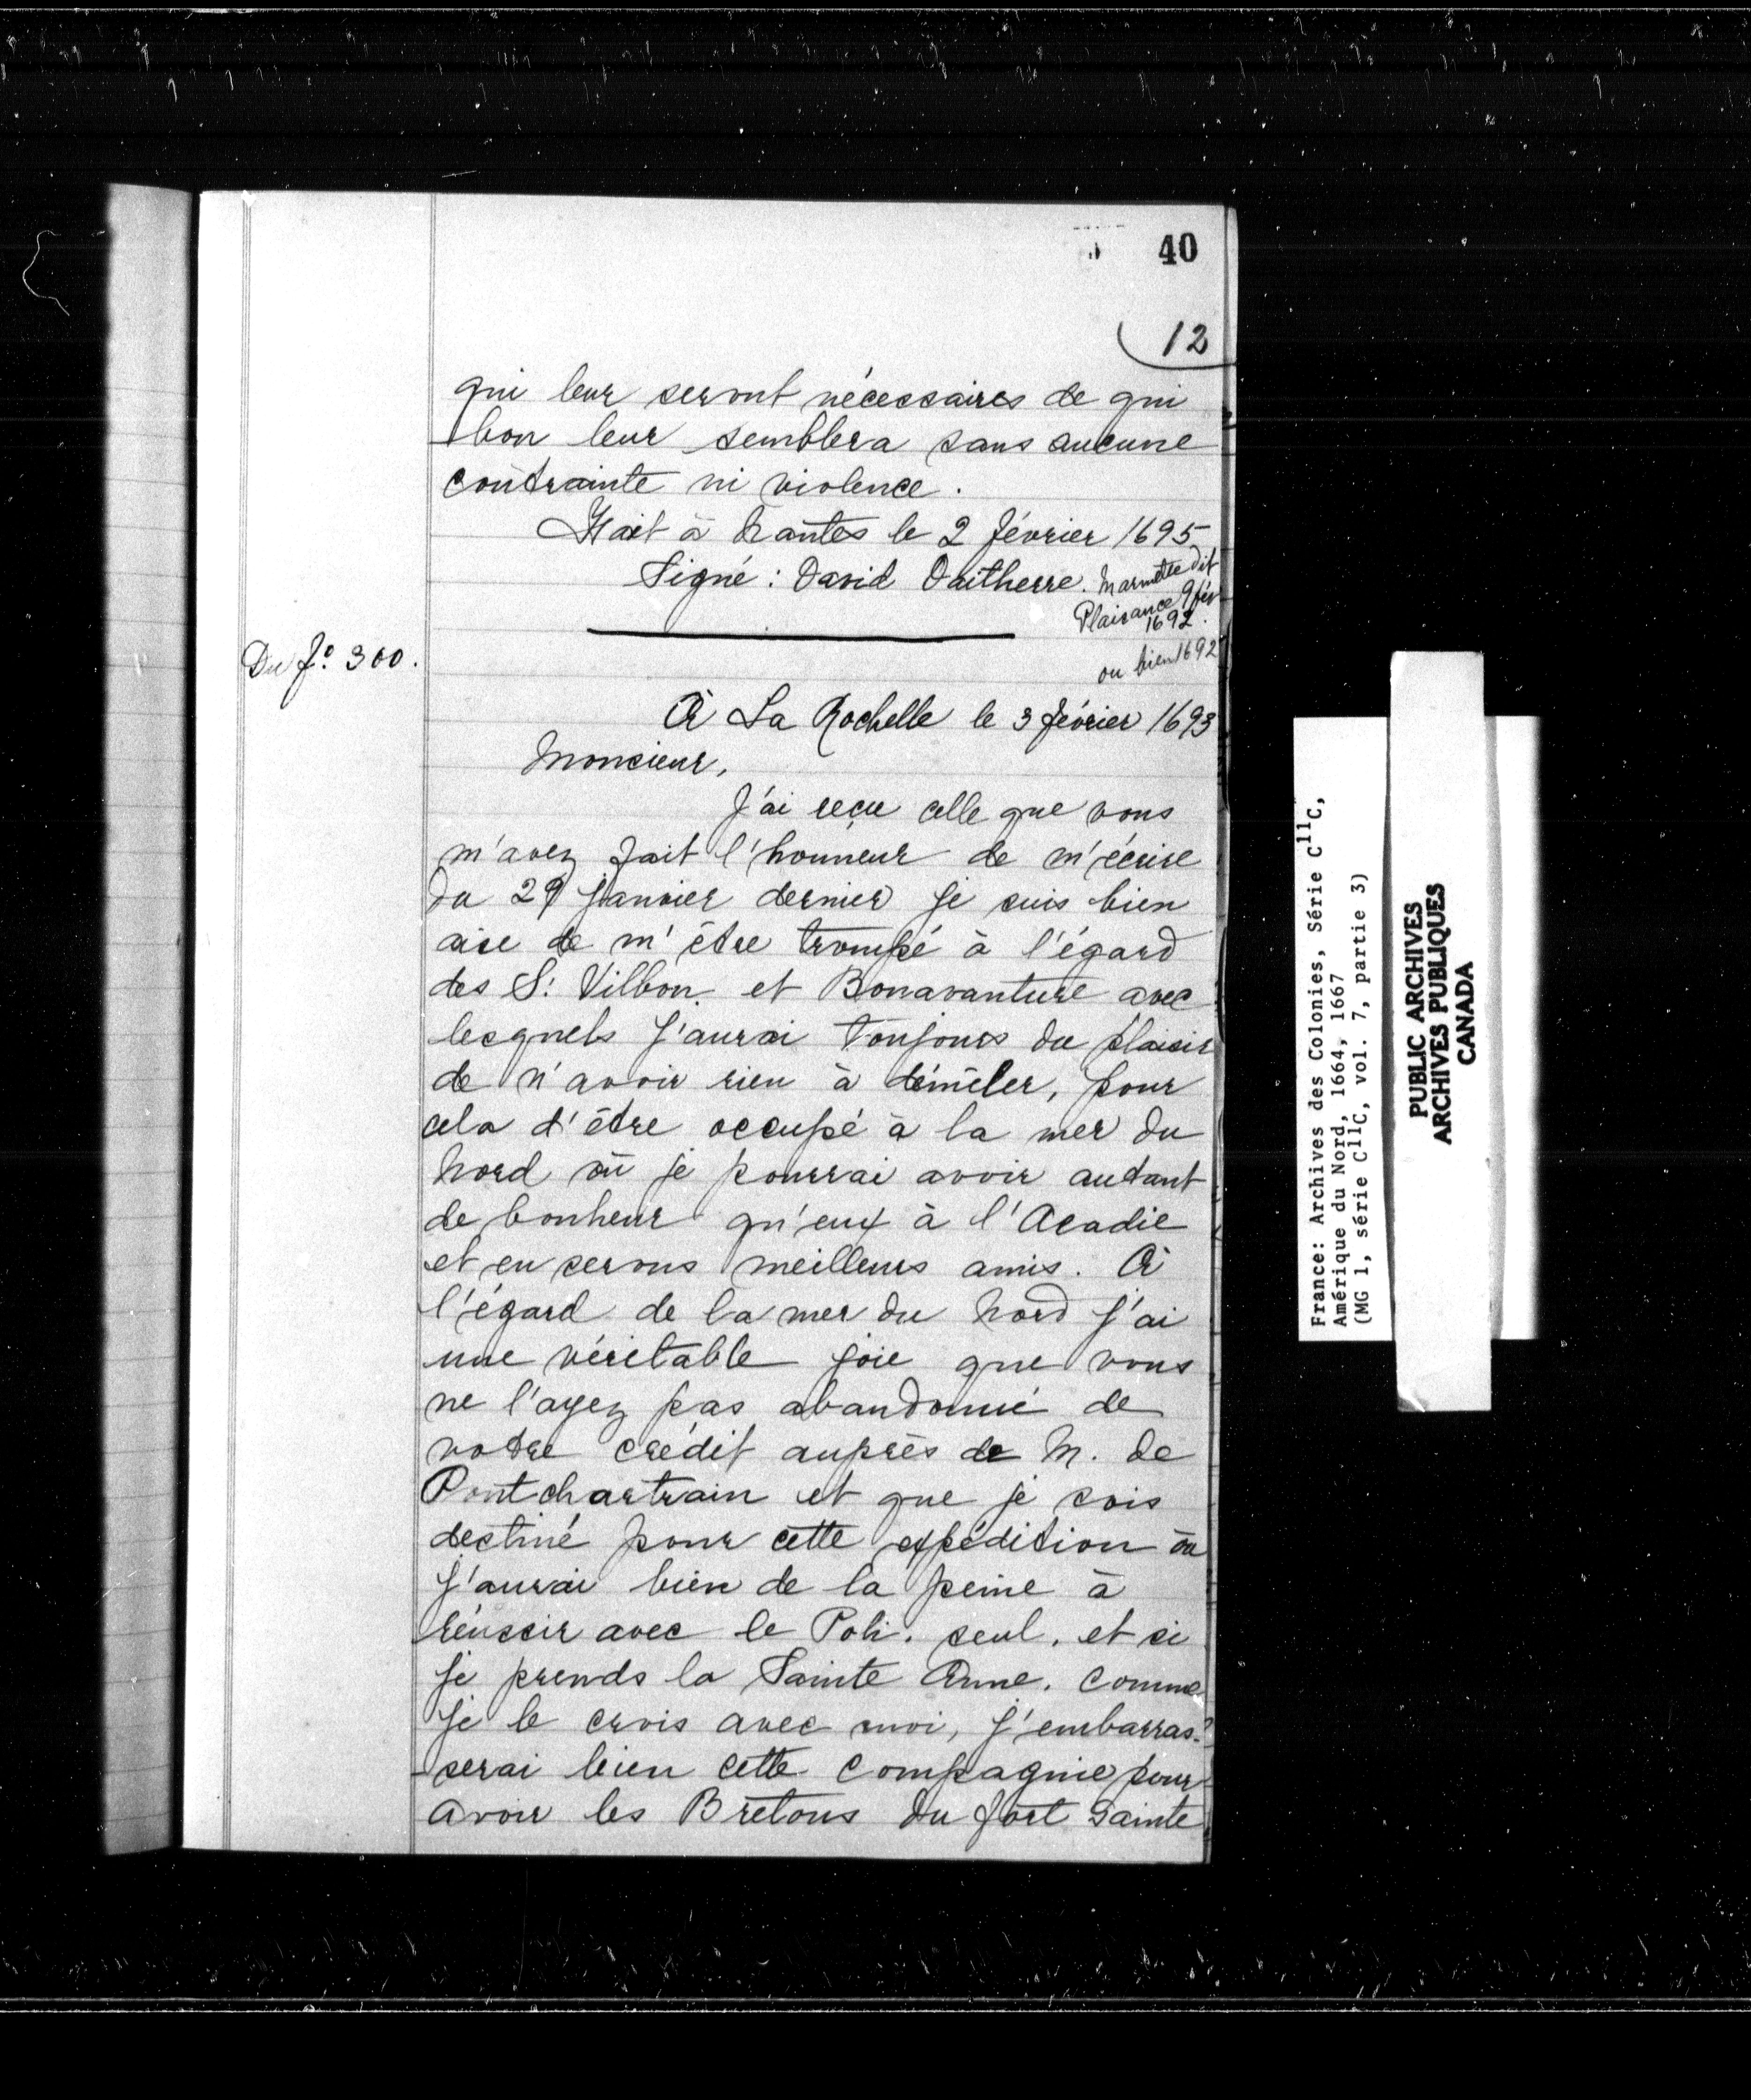 40
12
qui leur seront nécessaires de qui
bon leur semblera sans aucune
contrainte ni violence.
Fait à Nantes le 2 février 1695
Signé : David Daitherre. Marmette dit
Plaisance 9 fév
1692.
ou bien 1692
Du fo. 300.
À La Rochelle le 3 février 1693
Monsieur,
J'ai reçu celle que vous
m'avez fait l'honneur de m'écrire
du 29 janvier dernier je suis bien
aise de m'être trompé à l'égard
des S. Vilbon. et Bonavanture avec
lesquels j'aurai toujours du plaisir
de n'avoir rien à démêler, pour
cela d'être occupé à la mer du
Nord où je pourrai avoir autant
de bonheur qu'eux à l'Acadie
et en serons meilleurs amis. À
l'égard de la mer du Nord j'ai
une véritable joie que vous
ne l'ayez pas abandonné de
votre crédit auprès de M. de
Pontchartrain et que je sois
destiné pour cette expédition où
j'aurai bien de la peine à
réussir avec le Poli. seul. et si
je prends la Sainte Anne. comme
je le crois avec moi, j'embarras-
serai bien cette compagnie pour
avoir les Bretons du fort Sainte
France: Archives des Colonies, Série C11C,
Amérique du Nord, 1664, 1667
(MG 1, série C11C, vol. 7, partie 3)
PUBLIC ARCHIVES
ARCHIVES PUBLIQUES
CANADA